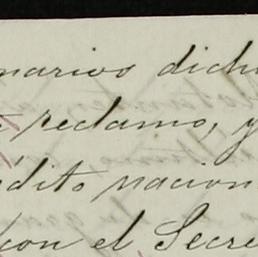 narios dich
reclamo, y
édito nacion
con el Secre